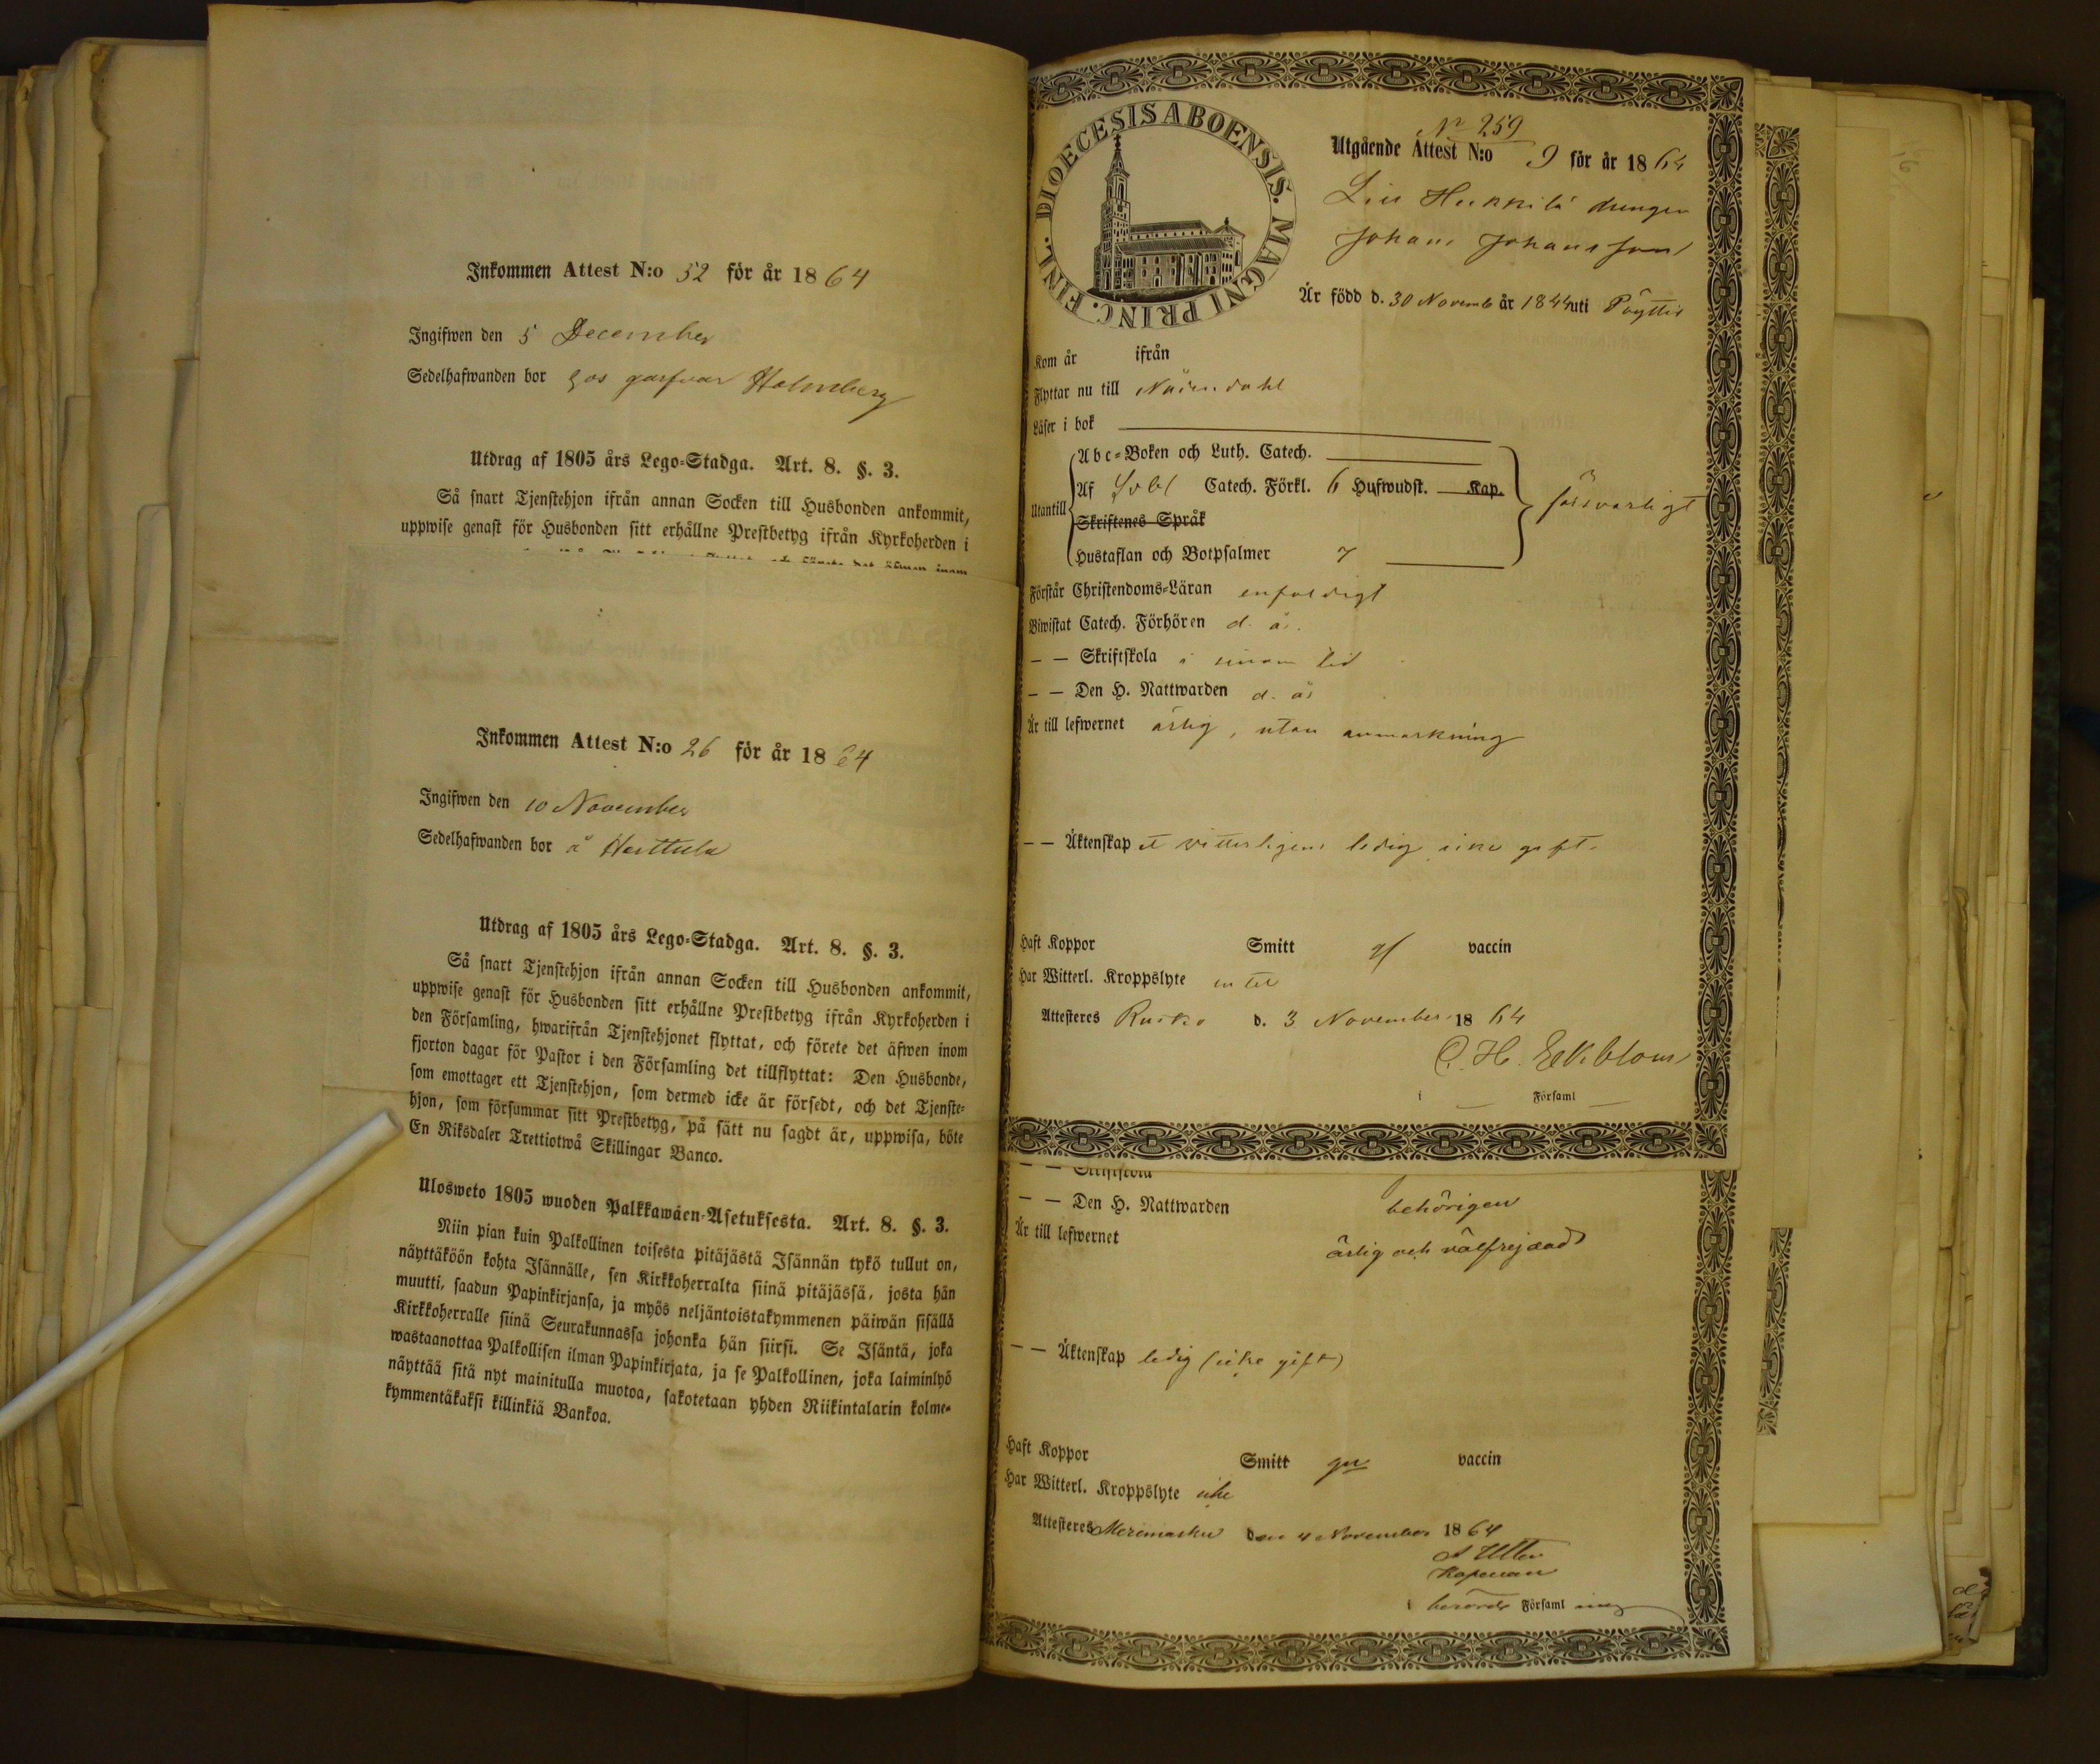 Inkommen Attest N:o 52 för år 1864
Ingifwen den 5 December
Sedelhafwanden bor hos garfvar Holmberg
Utdrag af 1805 års Lego-Stadga. Art. 8. §. 3.
Så snart Tjenstehjon ifrån annan Socken till Husbonden ankommit,
uppwise genast för Husbonden sitt erhållne Prestbetyg ifrån Kyrkoherden i
Inkommen Attest N:o 26 för år 1864
Ingifwen den 10 November
Sedelhafwanden bor å Herttula
Utdrag af 1805 års Lego-Stadga. Art. 8. §. 3.
Så snart Tjenstehjon ifrån annan Socken till Husbonden ankommit,
uppwise genast för Husbonden sitt erhållne Prestbetyg ifrån Kyrkoherden i
den Församling, hwarifrån Tjenstehjonet flyttat, och förete det äfwen inom
fjorton dagar för Pastor i den Församling det tillflyttat: Den Husbonde,
som emottager ett Tjenstehjon, som dermed icke är försedt, och det Tjenste-
hjon, som försummar sitt Prestbetyg, på sätt nu sagdt är, uppwisa, böte
En Riksdaler Trettiotwå Skillingar Banco.
Ulosweto 1805 wuoden Palkkawäen-Asetuksesta. Art. 8. §. 3.
Niin pian kuin Palkollinen toisesta pitäjästä Isännän tykö tullut on,
näyttäköön kohta Isännälle, sen Kirkkoherralta siinä pitäjässä, josta hän
muutti, saadun Papinkirjansa, ja myös neljäntoistakymmenen päiwän sisällä
Kirkkoherralle siinä Seurakunnassa johonka hän siirsi. Se Isäntä, joka
wastaanottaa Palkollisen ilman Papinkirjata, ja se Palkollinen, joka laiminlyö
näyttää sitä nyt mainitulla muotoa, sakotetaan yhden Riikintalarin kolme-
kymmentäkaksi killinkiä Bankoa.
DIOECESIS ABOENSIS. MAGNI PRINC. FINL.
N:o 259
Utgående Attest N:o 9 för år 1864
Heikkilä drengen
Johan Johansson
Är född d. 30 Novemb år 1844 uti Pöyttis
Kom år ifrån
Flyttar nu till Nådendahl
Läser i bok
Abc-Boken och Luth. Catech.
Utantill
Af Svebl Catech. Förkl. 6 Hufwudst. Kap.
försvarligt
Skriftenes Språk
Hustaflan och Botpsalmer 7
Förstår Christendoms-Läran enfaldigt
Biwistat Catech. Förhören d. å.
— — Skriftskola i sinom tid
— — Den H. Nattwarden d. å.
Är till lefwernet ärlig, utan anmärkning
— — Äktenskap witterligen ledig icke gift.
Haft Koppor Smitt vaccin
Har Witterl. Kroppslyte intet
Attesteres Rusko d. 3 November 1864
C. H. Eekblom
i Församl
— — Skriftskola
— — Den H. Nattwarden behörigen
Är till lefwernet ärlig och välfrejdad
— — Äktenskap ledig (icke gift)
Haft Koppor Smitt gn vaccin
Har Witterl. Kroppslyte icke
Attesteres Merimasku den 4 November 1864
Kapellan
i berörde Församling